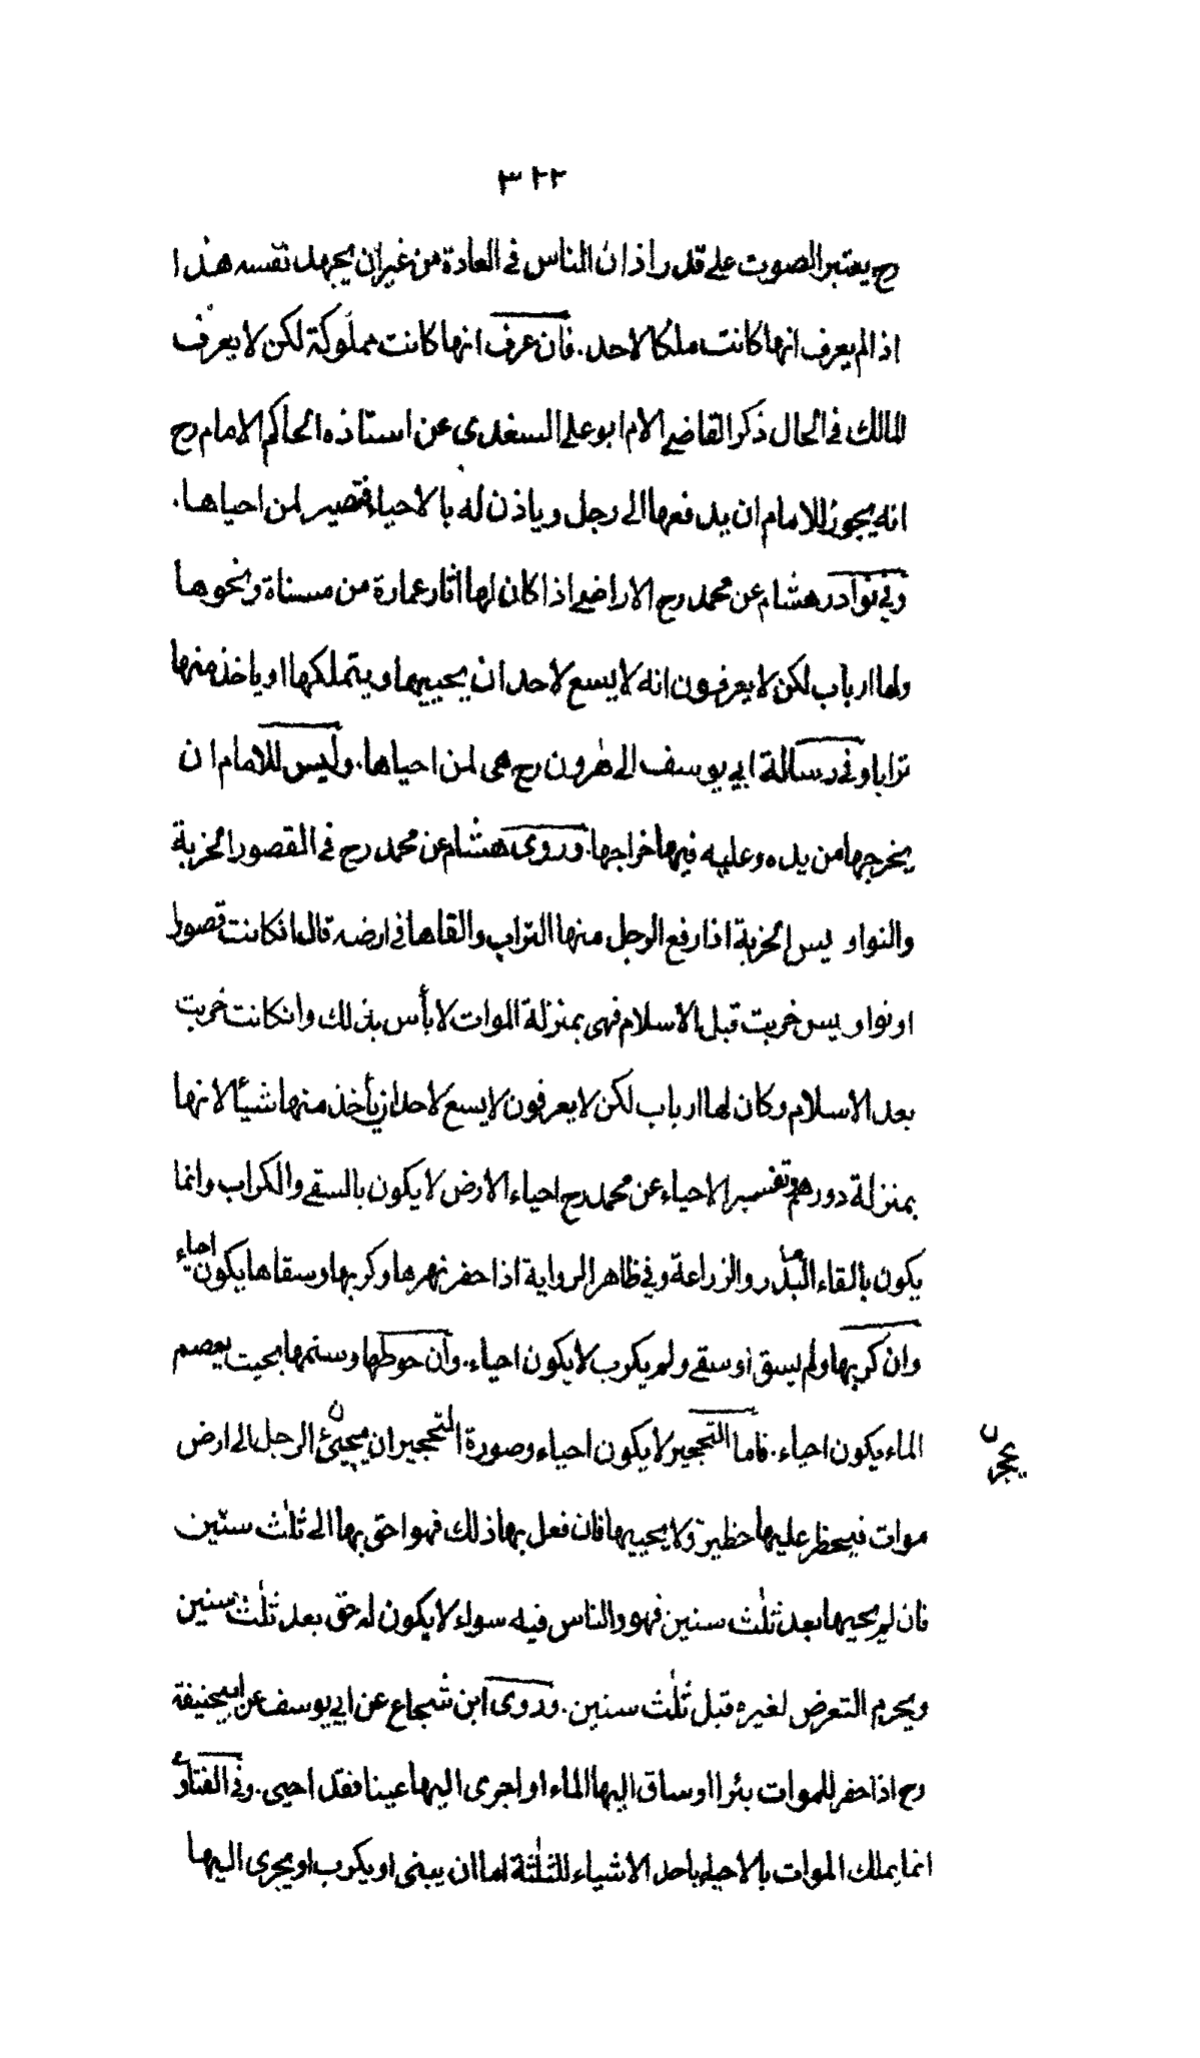 ٣٢٢
رح يعتبر الصوت على قدر اذان الناس في العادة من غير ان يجهد نفسه هذا
اذا لم يعرف انها كانت ملكا لاحد. فان عرف انها كانت مملوكة لكن لا يعرف
المالك في الحال ذكر القاضي الامام ابو على السغدى عن استاذه الحاكم الامام رح
انه يجوز للامام ان يدفعها الى رجل وياذن له بالاحياء فتصير لمن احياها.
وفي نوادر هشام عن محمد رح الاراضي اذا كان لها اثار عمارة من مسناة ونحوها
ولها ارباب لكن لا يعرفون انه لا يسع لاحد ان يحييها ويتملكها او ياخذ منها
ترابا وفي رسالة ابي يوسف الى هٰرون رح هى لمن احياها. وليس للامام ان
يخرجها من يده وعليه فيها خراجها. وروى هشام عن محمد رح في القصور الخربة
والنواويس الخربة اذا رفع الرجل منها التراب والقاها في ارضه قال انكانت قصور
او نواويس خربت قبل الاسلام فهى بمنزلة الموات لا بأس بذلك وانكانت خربت
بعد الاسلام وكان لها ارباب لكن لا يعرفون لا يسع لاحد ان يأخذ منها شيئا لانها
بمنزلة دورهم وتفسير الاحياء عن محمد رح احياء الارض لا يكون بالسقي والكراب وانما
يكون بالقاء البذر والزراعة وفي ظاهر الرواية اذا حفر نهرها وكربها وسقاها يكون احياء
وان كربها ولم يسق او سقي ولم يكرب لا يكون احياء. وان حوطها وسنمها بحيث يعصم
الماء يكون احياء. فاما التحجير لا يكون احياء وصورة التحجير ان يجيئ الرجل الى ارض
موات فيحظر عليها حظيرة ولا يحييها فان فعل بها ذلك فهو احق بها الى ثلٰث سنين
فان لم يحيها بعد ثلٰث سنين فهو والناس فيه سواء لا يكون له حق بعد ثلٰث سنين
ويحرم التعرض لغيره قبل ثلٰث سنين. وروى ابن شجاع عن ابي يوسف عن ابيحنيفة
رح اذا حفر للموات بئرا او ساق اليها الماء او اجرى اليها عينا فقد احيى. وفي الفتاوى
انما يملك الموات بالاحياء باحد الاشياء الثلٰثة اما ان يبنى او يكرب او يجرى اليها